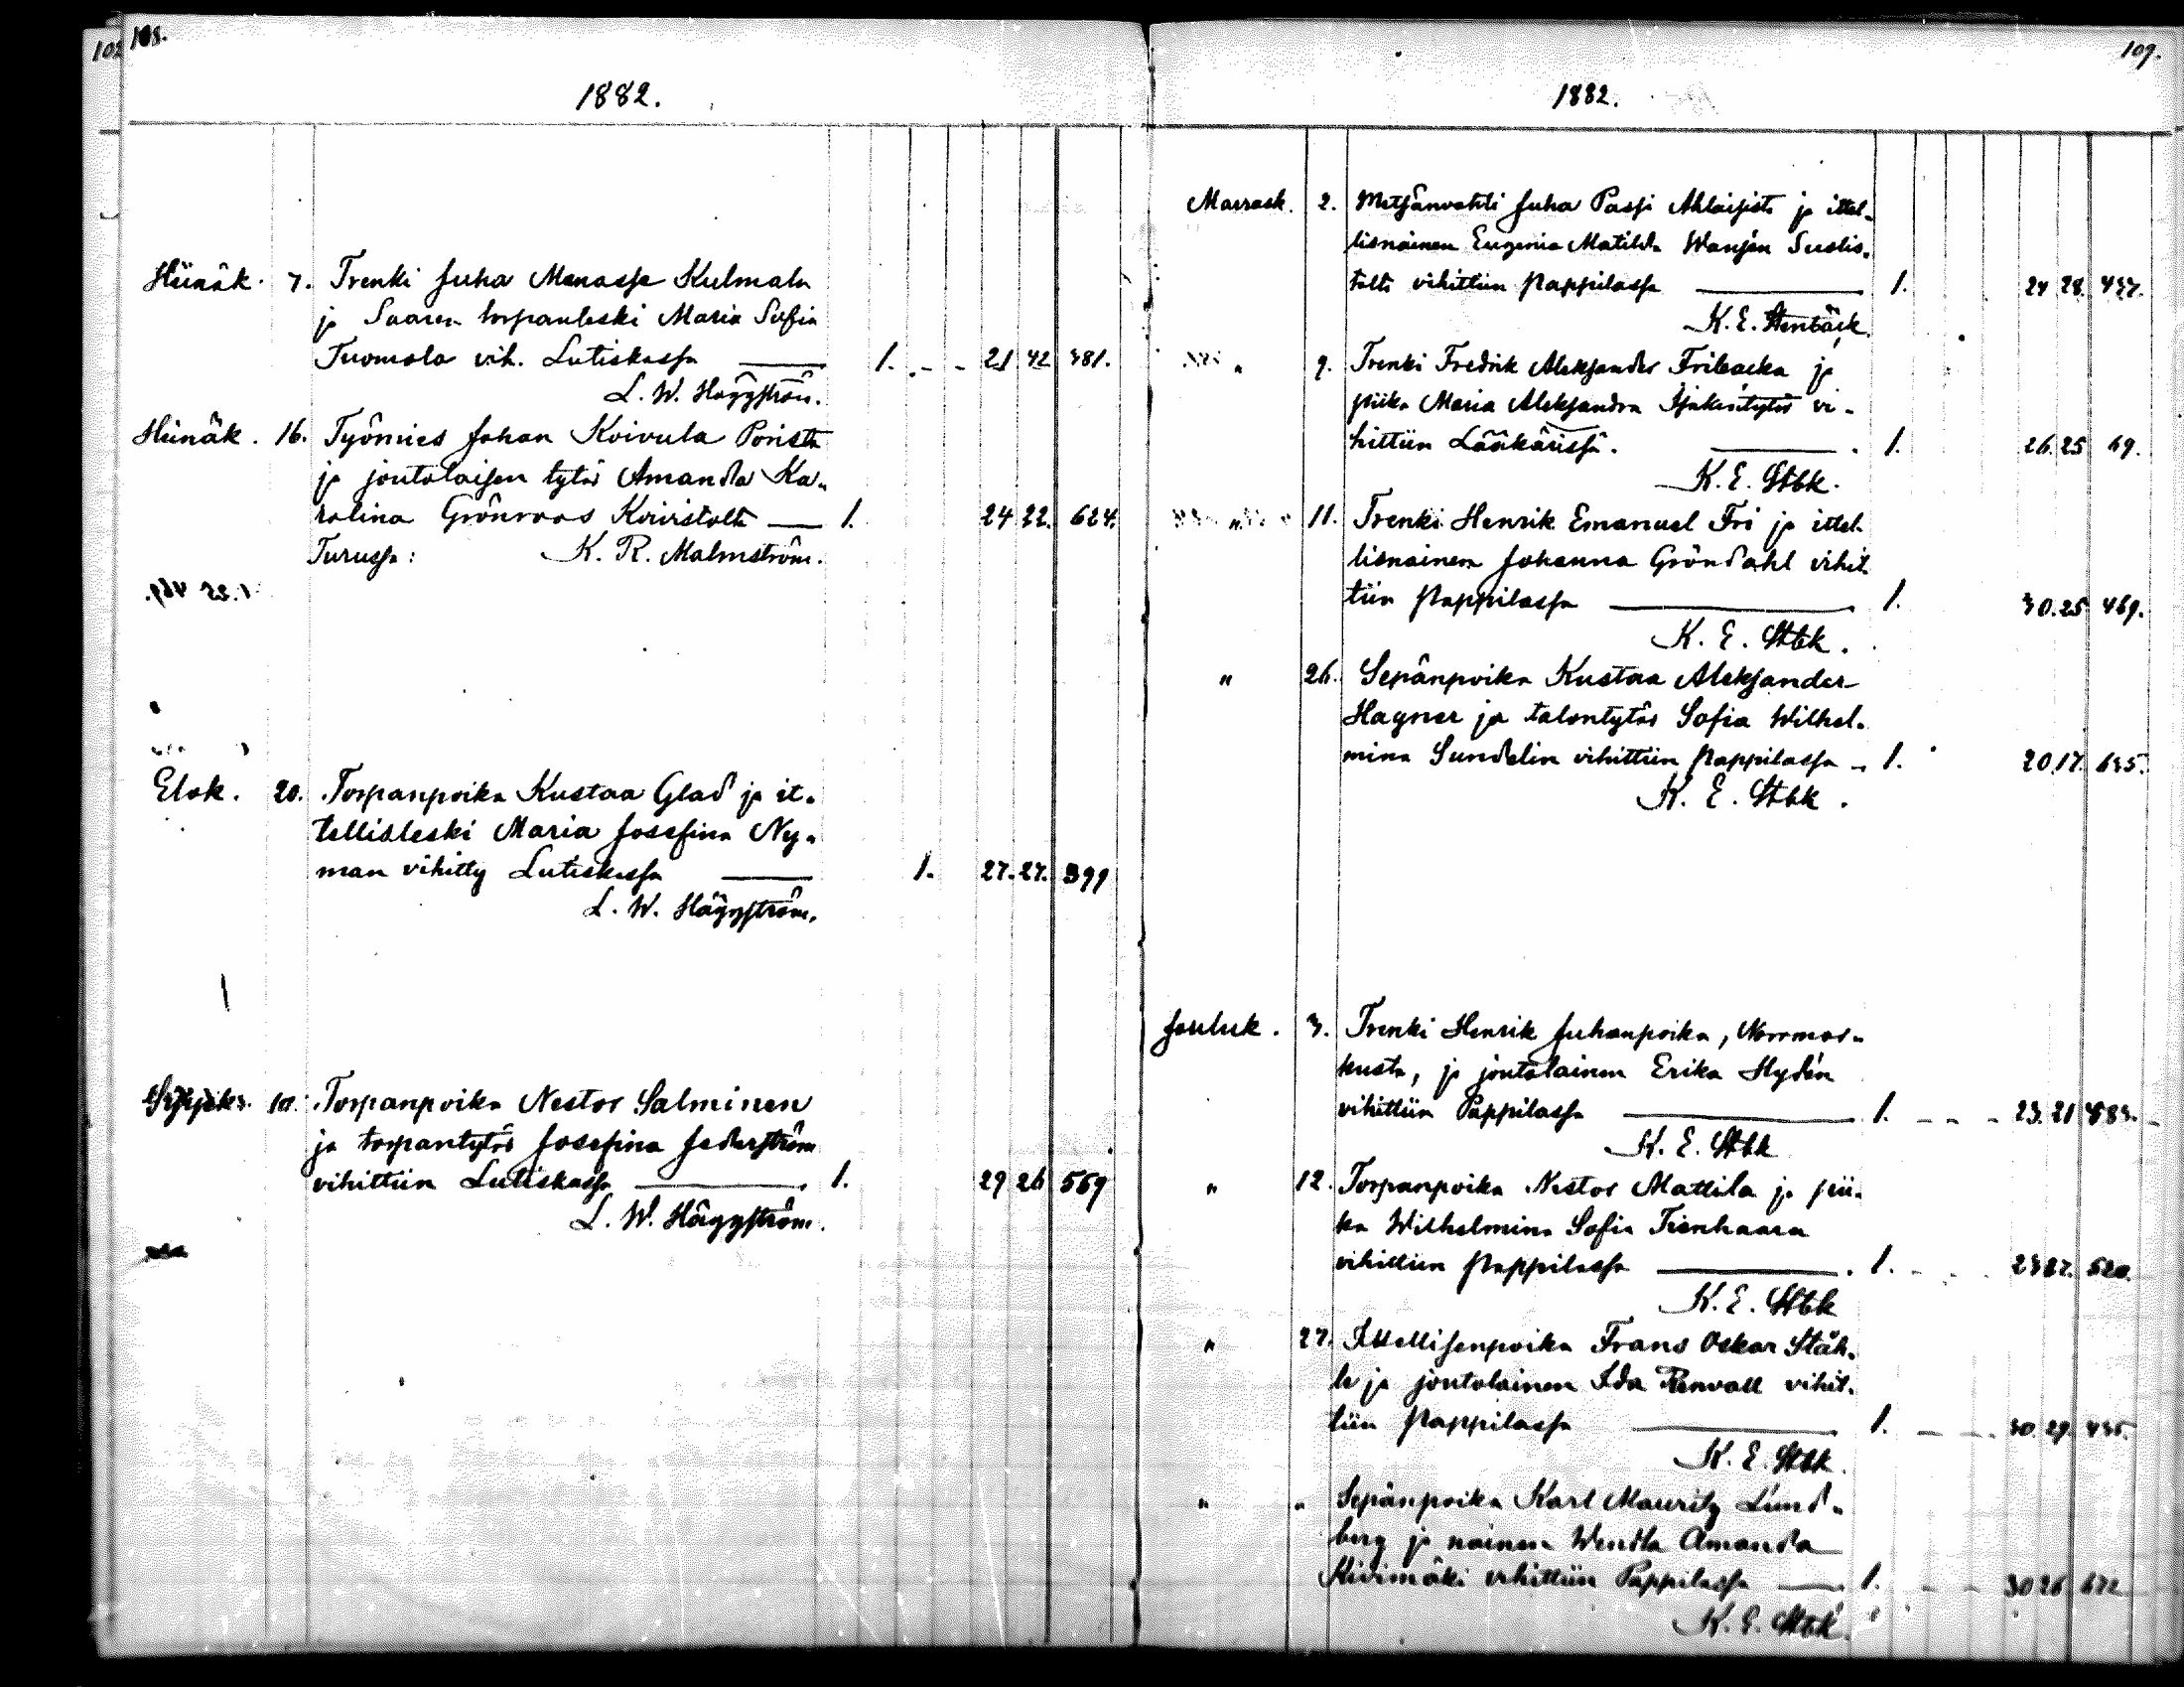 108.
1882.
Heinäk. 7. Trenki Juha Manasse Kulmala
ja Saaren torpanleski Maria Sofia
Tuomola vih. Lutiskassa 1. 21 42 381.
L. W. Häggström.
Heinäk. 16. Työmies Johan Koivula Porista
ja joutolaisen tytär Amanda Ka-
rolina Grönroos Koivistolta 1. 24 22. 624.
Turussa: K. R. Malmström.
Elok. 20. Torpanpoika Kustaa Glad ja it-
tellisleski Maria Josefina Ny-
man vihitty Lutiskassa 1. 27. 27. 399
L. W. Häggström.
10. Torpanpoika Nestor Salminen
ja torpantytär Josefina Jederström
vihittiin Lutiskassa 1. 29 26 569
L. W. Häggström.
109.
1882.
Marrask. 2. Metsänvahti Juha Passi Ahlaisista ja ittel-
lisnainen Eugenia Matilda Wanjén
vihittiin Pappilassa 1. 24 28. 437.
K. E. Stenbäck.
" 9. Trenki Fredrik Aleksander Fribacka ja
piika Maria Aleksandra vi-
hittiin Lääkärissä. 1. 26. 25 69.
K. E. Stbk.
" 11. Trenki Henrik Emanuel Fri ja ittel-
lisnainen Johanna Gröndahl vihit-
tiin Pappilassa 1. 30. 25 469.
K. E. Stbk.
" 26. Sepänpoika Kustaa Aleksander
Hagner ja talontytär Sofia Wilhel-
mina Sundelin vihittiin Pappilassa 1. 20 17. 635.
K. E. Stbk.
Jouluk. 3. Trenki Henrik Juhanpoika, Norrmar-
kusta, ja joutolainen Erika Hydén
vihittiin Pappilassa 1. 23. 21
K. E. Stbk
" 12. Torpanpoika Nestor Mattila ja pii-
ka Wilhelmina Sofia Tienhaara
vihittiin Pappilassa 1. 520.
K. E. Stbk
" 27. Ittellisenpoika Frans Oskar Ståh-
le ja joutolainen Ida Renvall vihit-
tiin Pappilassa 1. 30. 29. 435.
K. E. Stbk.
" " Sepänpoika Karl Mauritz Lind-
berg ja nainen Wendla Amanda
Kivimäki vihittiin Pappilassa 1. 30 26 672
K. E. Stbk.